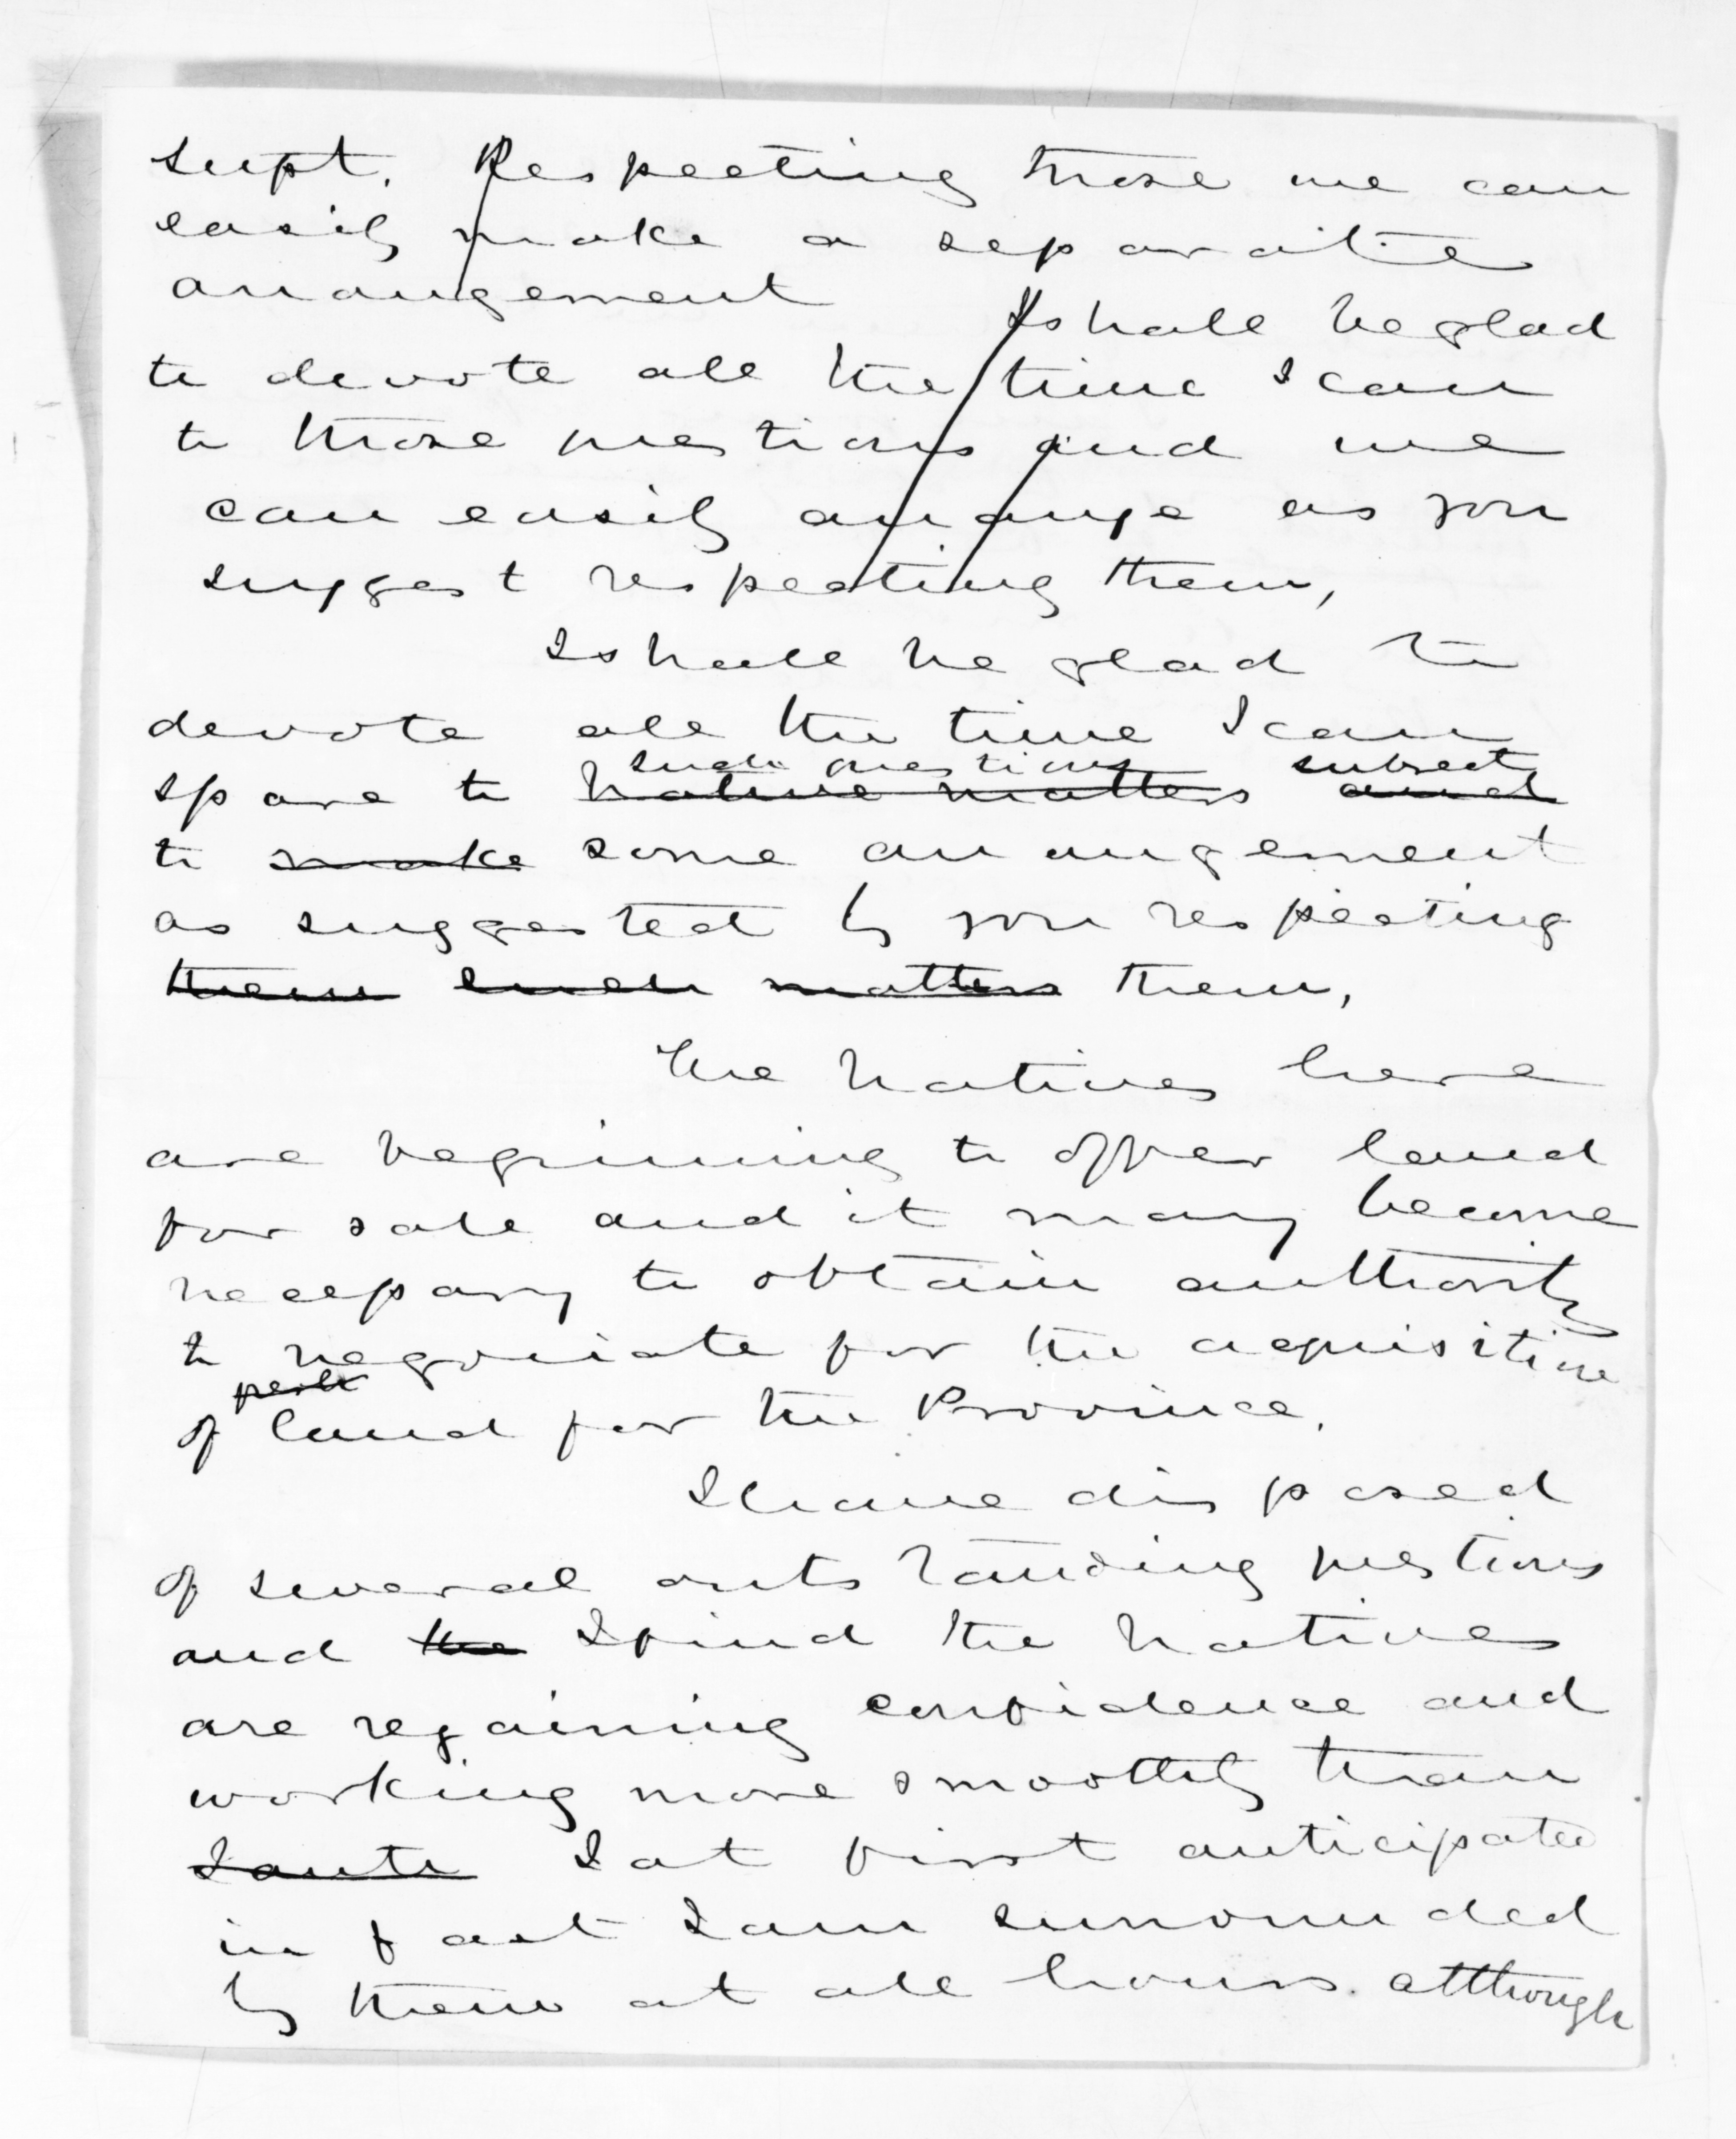 Supt. Respecting those we can
easily make a separate
arrangement
I shall be glad
to devote all the time I can
to those questions and we
can easily arrange as you
suggest respecting them,
I shall be glad to
devote all the time I can
such questions subject
spare to Native matters and
to make some arrangement
as suggested by you respecting
them such matters them,
The Natives here
are beginning to offer land
for sale and it may become
necessary to obtain authority
to negociate for the acquisition
of land for the Province.
I have disposed
of several outstanding questions
and the I find the Natives
are regaining confidence and
working more smoothly than
I at first anticipated
in fact I am surrounded
by them at all hours. although